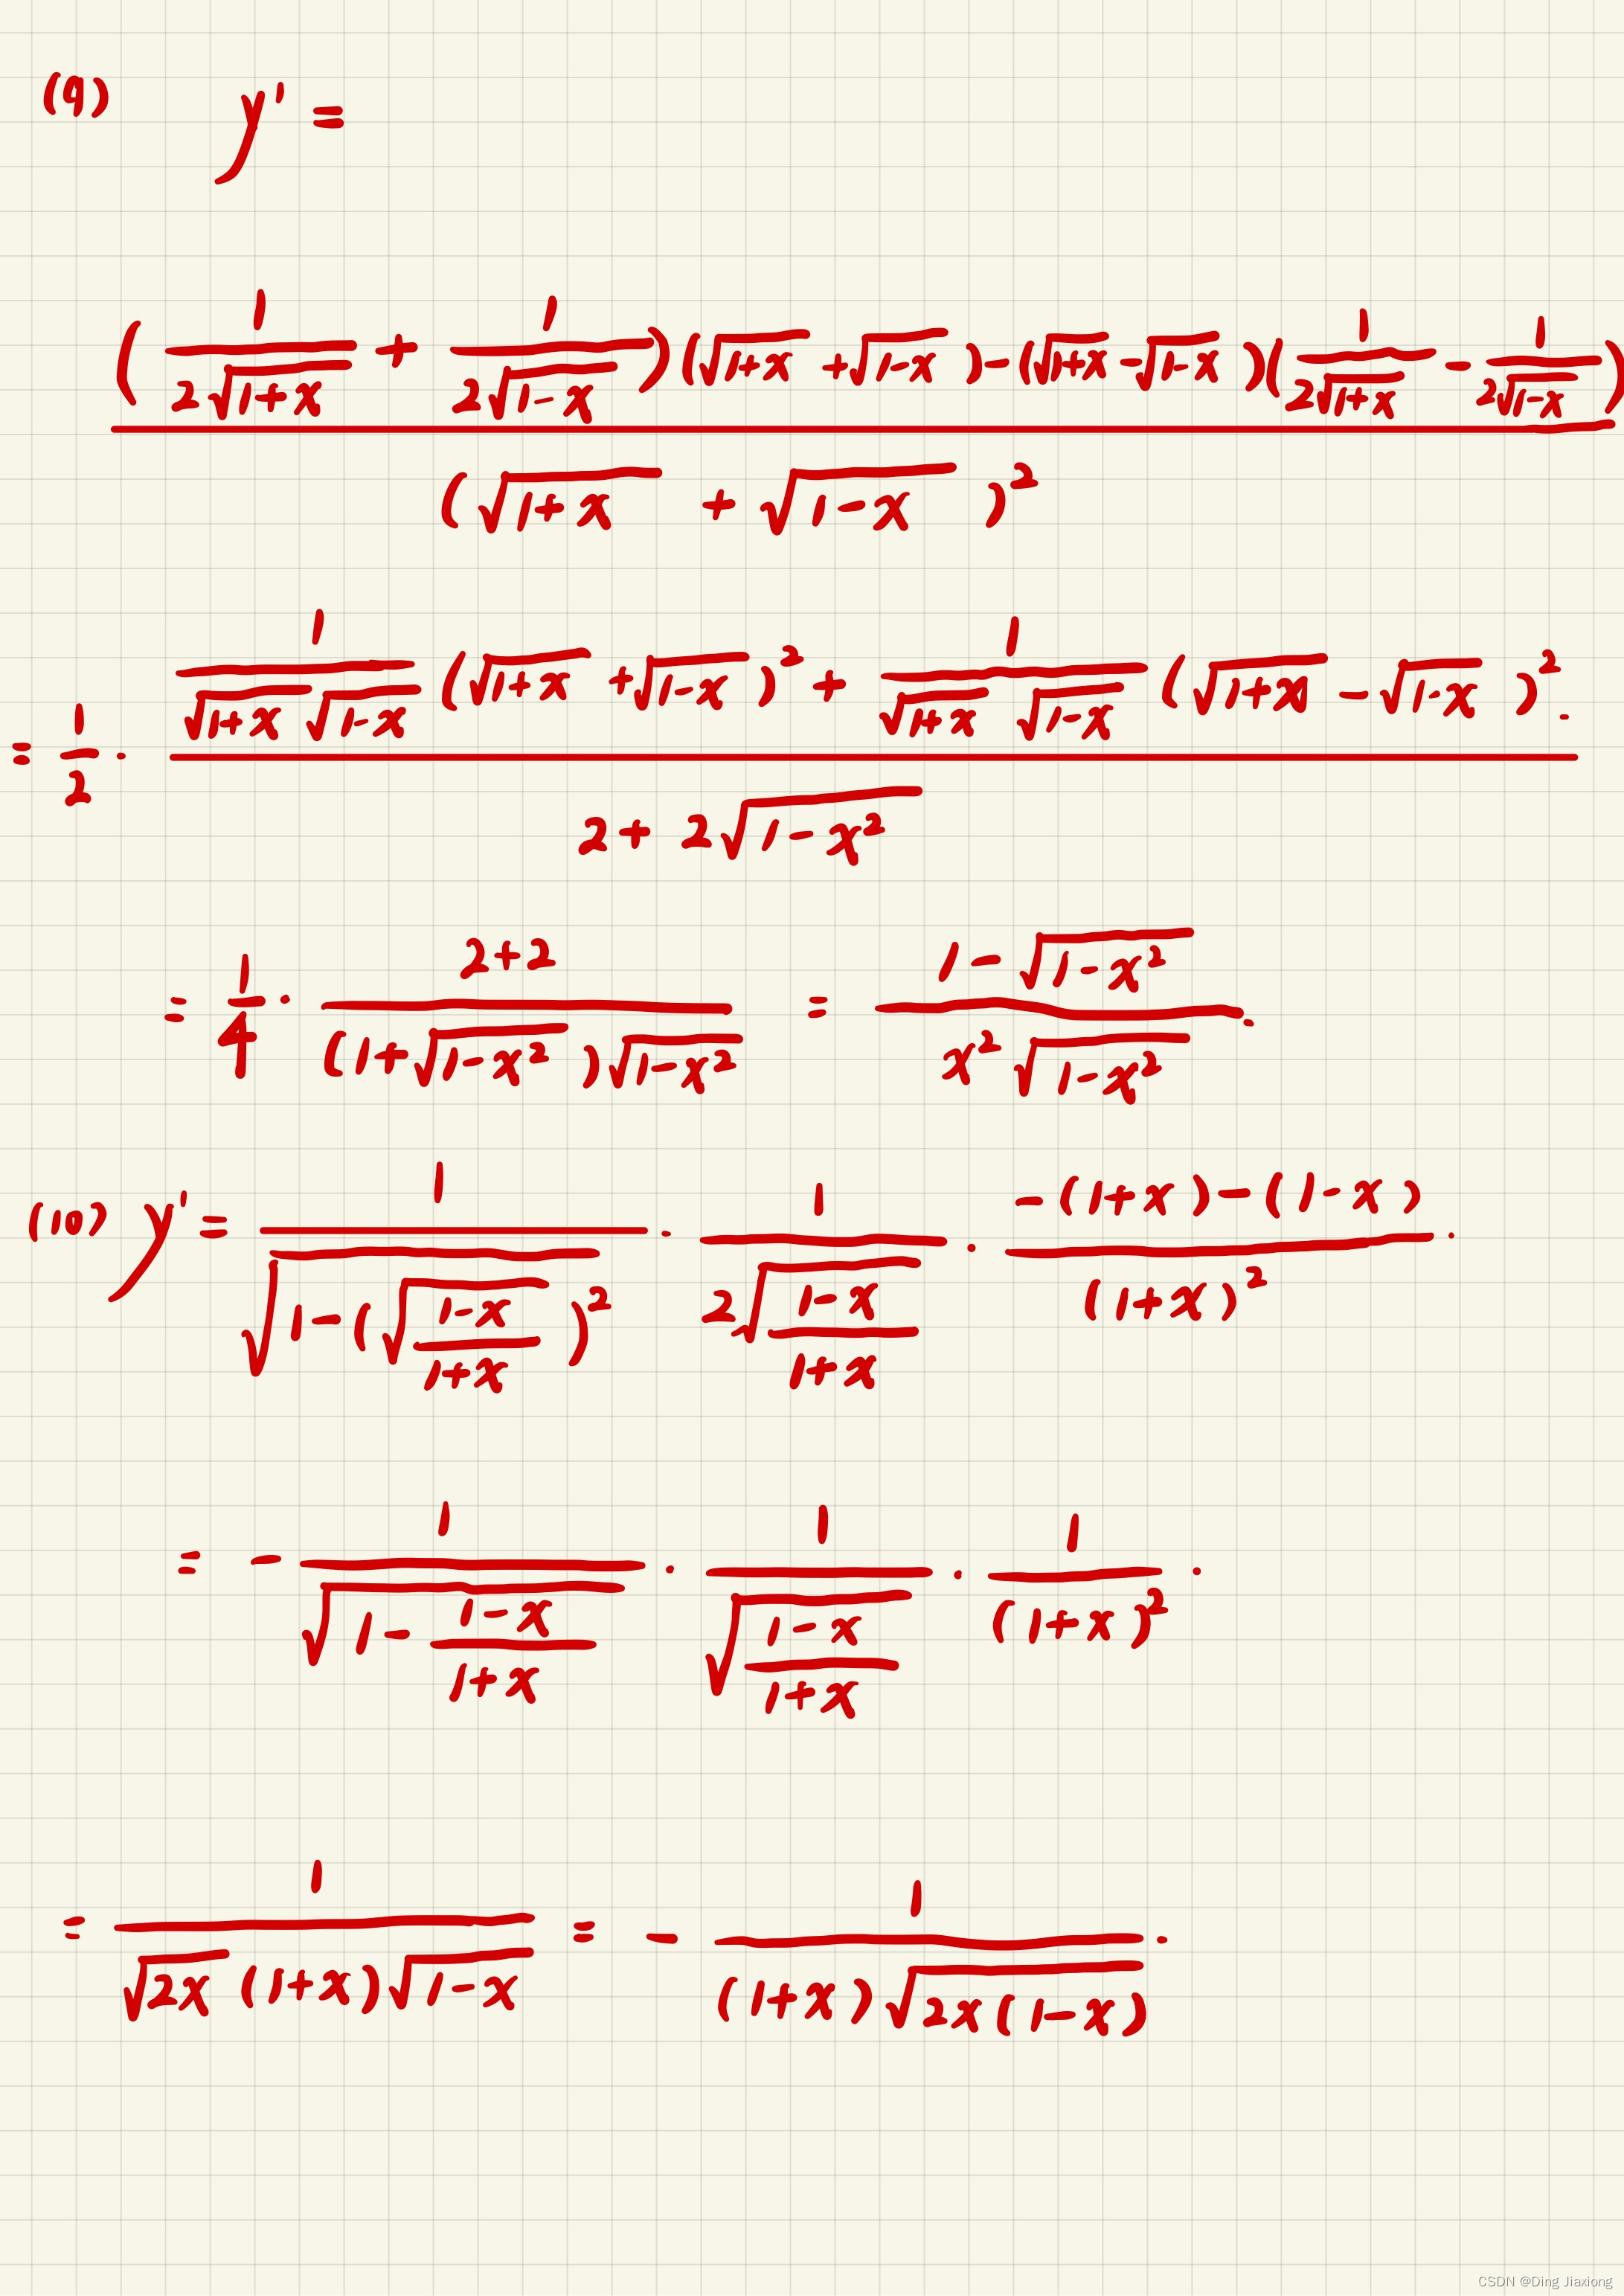 (9) y' =
\frac{(\frac{1}{2\sqrt{1+x}} + \frac{1}{2\sqrt{1-x}})(\sqrt{1+x} + \sqrt{1-x}) - (\sqrt{1+x} - \sqrt{1-x})(\frac{1}{2\sqrt{1+x}} - \frac{1}{2\sqrt{1-x}})}{(\sqrt{1+x} + \sqrt{1-x})^2}
= \frac{1}{2} \cdot \frac{\frac{1}{\sqrt{1+x}\sqrt{1-x}}(\sqrt{1+x} + \sqrt{1-x})^2 + \frac{1}{\sqrt{1+x}\sqrt{1-x}}(\sqrt{1+x} - \sqrt{1-x})^2.}{2 + 2\sqrt{1-x^2}}
= \frac{1}{4} \cdot \frac{2+2}{(1+\sqrt{1-x^2})\sqrt{1-x^2}} = \frac{1-\sqrt{1-x^2}}{x^2\sqrt{1-x^2}}.
(10) y' = \frac{1}{\sqrt{1-(\sqrt{\frac{1-x}{1+x}})^2}} \cdot \frac{1}{2\sqrt{\frac{1-x}{1+x}}} \cdot \frac{-(1+x)-(1-x)}{(1+x)^2} \cdot
= - \frac{1}{\sqrt{1-\frac{1-x}{1+x}}} \cdot \frac{1}{\sqrt{\frac{1-x}{1+x}}} \cdot \frac{1}{(1+x)^2} \cdot
= \frac{1}{\sqrt{2x}(1+x)\sqrt{1-x}} = - \frac{1}{(1+x)\sqrt{2x(1-x)}}.
CSDN @Ding Jiaxiong